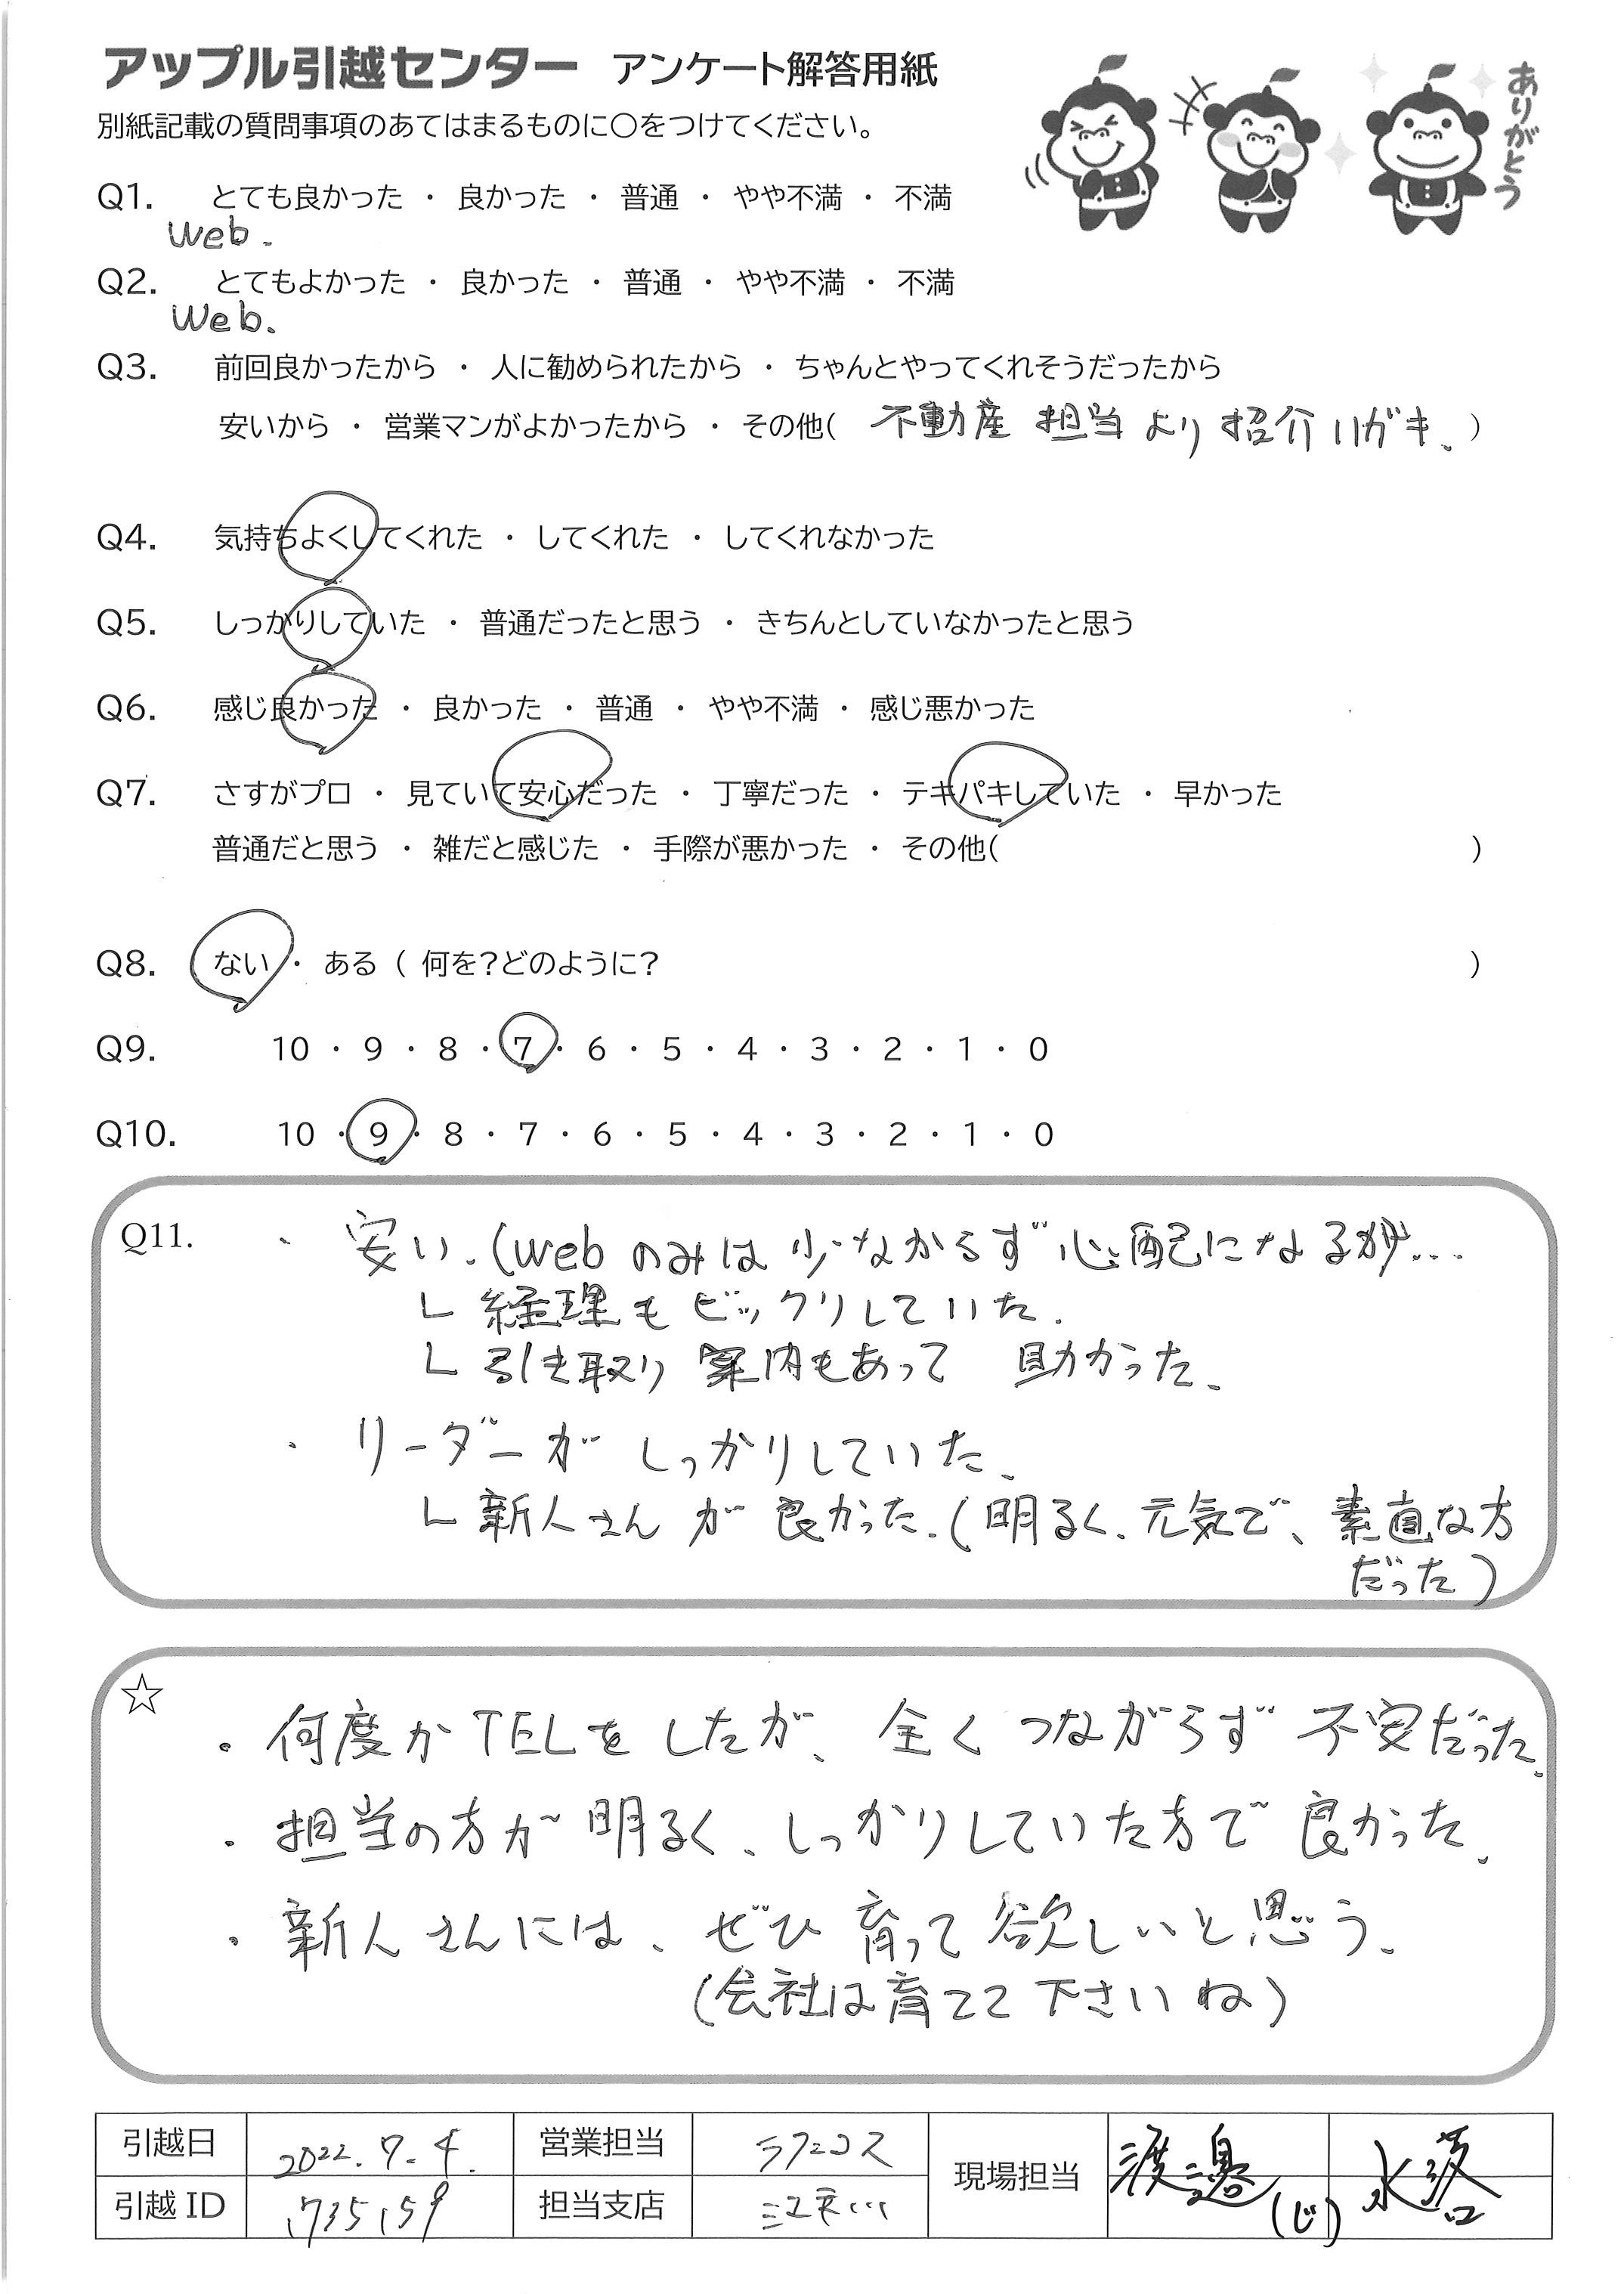 アップル引越センター アンケート解答用紙
別紙記載の質問事項のあてはまるものに○をつけてください。
ありがとう
Q1. とても良かった ・ 良かった ・ 普通 ・ やや不満 ・ 不満
Web.
Q2. とてもよかった ・ 良かった ・ 普通 ・ やや不満 ・ 不満
Web.
Q3. 前回良かったから ・ 人に勧められたから ・ ちゃんとやってくれそうだったから
安いから ・ 営業マンがよかったから ・ その他( 不動産 担当より紹介ハガキ. )
Q4. 気持ちよくしてくれた ・ してくれた ・ してくれなかった
Q5. しっかりしていた ・ 普通だったと思う ・ きちんとしていなかったと思う
Q6. 感じ良かった ・ 良かった ・ 普通 ・ やや不満 ・ 感じ悪かった
Q7. さすがプロ ・ 見ていて安心だった ・ 丁寧だった ・ テキパキしていた ・ 早かった
普通だと思う ・ 雑だと感じた ・ 手際が悪かった ・ その他( )
Q8. ない ・ ある ( 何を?どのように? )
Q9. 10 ・ 9 ・ 8 ・ 7 ・ 6 ・ 5 ・ 4 ・ 3 ・ 2 ・ 1 ・ 0
Q10. 10 ・ 9 ・ 8 ・ 7 ・ 6 ・ 5 ・ 4 ・ 3 ・ 2 ・ 1 ・ 0
Q11. ・ 安い.(webのみは少なからず心配になるが...
経理もビックリしていた.
引き取り案内もあって 助かった.
・ リーダーがしっかりしていた.
新人さんが良かった.(明るく、元気で、素直な方
だった)
☆
・何度かTELをしたが、全くつながらず不安だった.
・担当の方が明るく、しっかりしていた方で良かった.
・新人さんには、ぜひ育って欲しいと思う.
(会社は育てて下さいね)
引越日 2022.7.4. 営業担当 現場担当 渡邊(じ) 水落
引越ID 735159 担当支店 江戸川